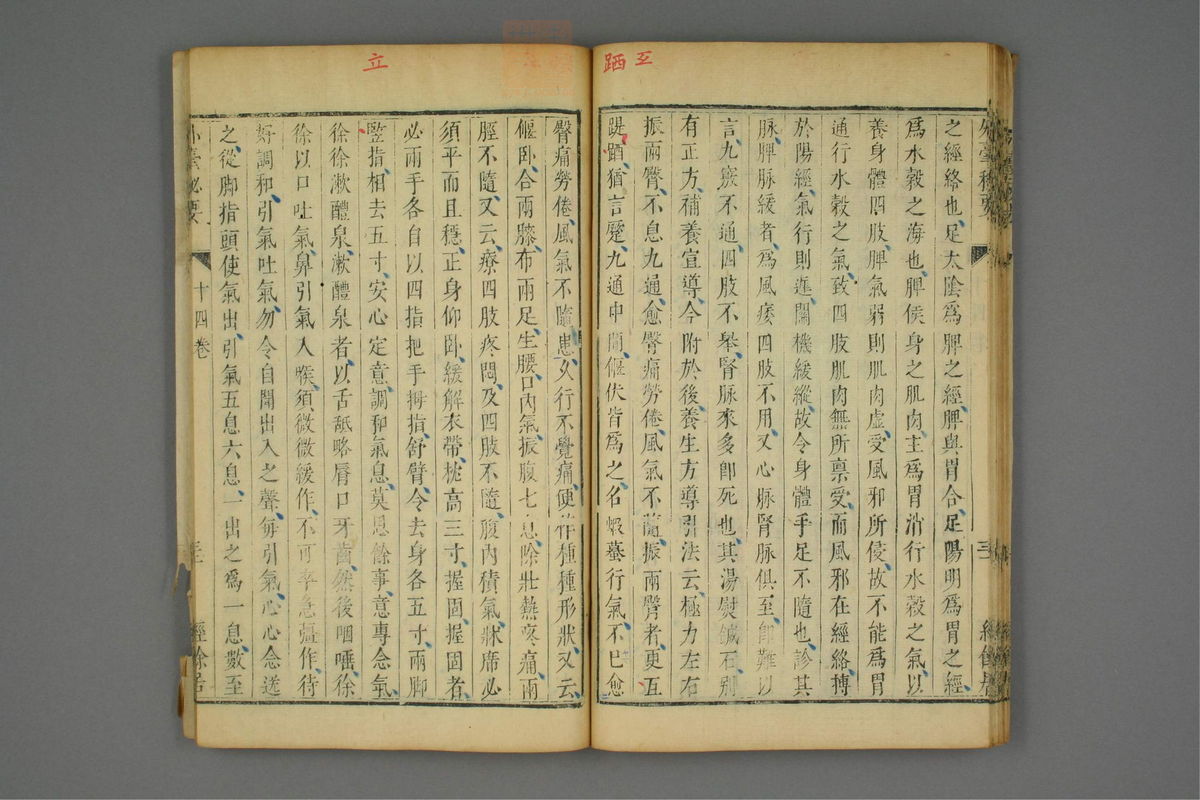 互
踇
外臺秘要
三
經餘居
之經絡也足太陰爲脾之經脾與胃合足陽明爲胃之經
爲水穀之海也脾侯身之肌肉主爲胃消行水穀之氣以
養身體四肢脾氣弱則肌肉虛受風邪所侵故不能爲胃
通行水穀之氣致四肢肌肉無所禀受而風邪在經絡搏
於陽經氣行則遲關機緩縱故令身體手足不隨也診其
脉脾脉緩者爲風痿四肢不用又心脉腎脉俱至卽難以
言九竅不通四肢不舉腎脉來多卽死也其湯熨鍼石別
有正方補養宣導今附於後養生方導引法云極力左右
振兩臀不息九通愈臀痛勞倦風氣不隨振兩臀者更互
踶踇猶言蹷九通中間偃伏皆爲之名蝦蟇行氣不已愈
立
臀痛勞倦風氣不隨患久行不覺痛便作種種形狀又云
偃臥合兩膝布兩足生腰口內氣振腹七息除壯熱疼痛兩
脛不隨又云療四肢疼悶及四肢不隨腹內積氣牀席必
須平而且穩正身仰臥緩解衣帶枕高三寸握固握固者
必兩手各自以四指把手拇指舒臂令去身各五寸兩脚
竪指相去五寸安心定意調和氣息莫思餘事意專念氣
徐徐漱醴泉漱醴泉者以舌舐略唇口牙齒然後咽唾徐
徐以口吐氣鼻引氣入喉須微微緩作不可卒急彊作待
好調和引氣吐氣勿令自聞出入之聲每引氣心心念送
之從脚指頭使氣出引氣五息六息一出之爲一息數至
外臺秘要
十四卷
經餘居